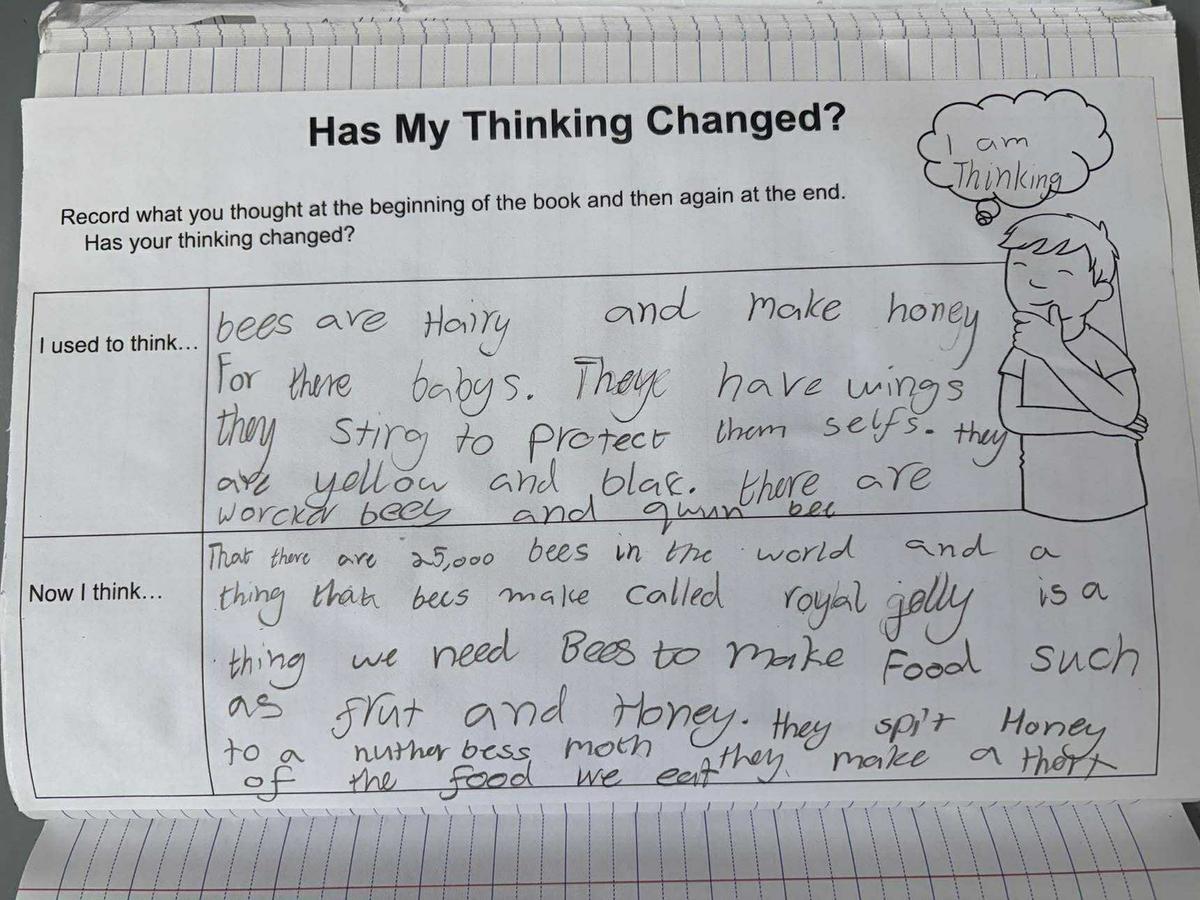 Has My Thinking Changed?
I am
Thinking
Record what you thought at the beginning of the book and then again at the end.
Has your thinking changed?
I used to think...
bees are Hairy and make honey
For there babys. They have wings
they sting to Protect them selfs. they
are yellow and blak. there are
worcker bees and qwun bee
Now I think...
That there are 25,000 bees in the world and a
thing that bees make called royal jelly is a
thing we need Bees to make Food such
as frut and Honey. they spit Honey
to a nuther bess moth they make a thert
of the food we eat